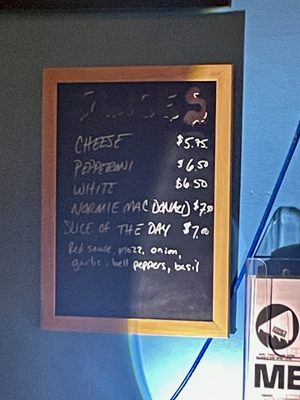 SLICES
CHEESE $5.75
PEPPERONI $6.50
WHITE $6.50
NORMIE MACDONALD $7.00
SLICE OF THE DAY $7.00
Red sauce, mozz, onion,
garlic, bell peppers, basil
ME